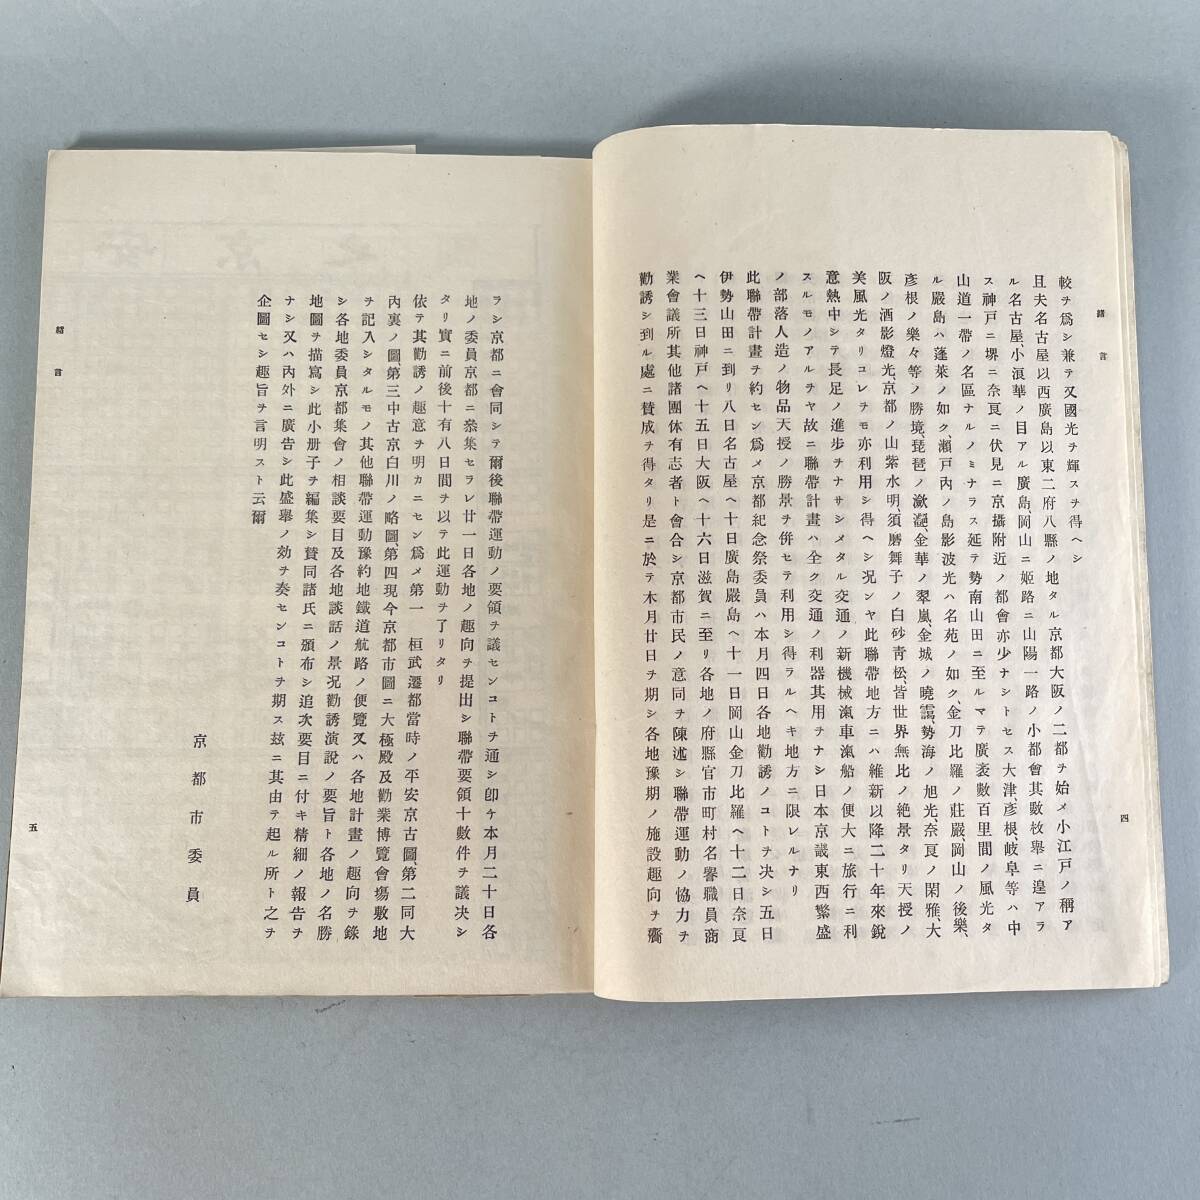 緒言
四
較ヲ爲シ兼テ又國光ヲ輝スヲ得ヘシ
且夫名古屋以西廣島以東二府八縣ノ地タル京都大阪ノ二都ヲ始メ小江戸ノ稱ア
ル名古屋、小浪華ノ目アル廣島、岡山ニ姫路ニ山陽一路ノ小都會其數枚擧ニ遑アラ
ス神戸ニ堺ニ奈良ニ伏見ニ京攝附近ノ都會亦少ナシトセス大津、彦根、岐阜等ハ中
山道一帶ノ名區ナルノミナラス延テ勢南山田ニ至ルマテ廣袤數百里間ノ風光タ
ル嚴島ハ蓬萊ノ如ク瀬戸内ノ島影波光ハ名苑ノ如ク、金刀比羅ノ莊嚴、岡山ノ後樂、
彦根ノ樂々等ノ勝境、琵琶ノ瀲灔、金華ノ翠嵐、金城ノ曉靄、勢海ノ旭光、奈良ノ閑雅、大
阪ノ酒影燈光、京都ノ山紫水明、須磨舞子ノ白砂靑松、皆世界無比ノ絶景タリ天授ノ
美風光タリコレヲモ亦利用シ得ヘシ况ンヤ此聯帶地方ニハ維新以降二十年來銳
意熱中シテ長足ノ進步ヲナサシメタル交通ノ新機械滊車滊船ノ便大ニ旅行ニ利
スルモノアルヲヤ故ニ聯帶計畫ハ全ク交通ノ利器其用ヲナシ日本京畿東西繁盛
ノ部落人造ノ物品天授ノ勝景ヲ併セテ利用シ得ラルヘキ地方ニ限レルナリ
此聯帶計畫ヲ約セン爲メ京都紀念祭委員ハ本月四日各地勸誘ノコトヲ決シ五日
伊勢山田ニ到リ八日名古屋ヘ十日廣島嚴島ヘ十一日岡山金刀比羅ヘ十二日奈良
ヘ十三日神戸ヘ十五日大阪ヘ十六日滋賀ニ至リ各地ノ府縣官市町村名譽職員商
業會議所其他諸團体有志者ト會合シ京都市民ノ意同ヲ陳述シ聯帶運動ノ協力ヲ
勸誘シ到ル處ニ賛成ヲ得タリ是ニ於テ本月廿日ヲ期シ各地豫期ノ施設趣向ヲ齎
ラシ京都ニ會同シテ爾後聯帶運動ノ要領ヲ議センコトヲ通シ卽ケ本月二十日各
地ノ委員京都ニ叅集セラレ廿一日各地ノ趣向ヲ提出シ聯帶要領十數件ヲ議決シ
タリ實ニ前後十有八日間ヲ以テ此運動ヲ了リタリ
依テ其勸誘ノ趣意ヲ明カニセン爲メ第一 桓武遷都當時ノ平安京古圖、第二同大
内裏ノ圖第三中古京白川ノ略圖、第四現今京都市圖ニ大極殿及勸業博覽會塲敷地
ヲ記入シタルモノ其他聯帶運動豫約地鐵道航路ノ便覽又ハ各地計畫ノ趣向ヲ錄
シ各地委員京都集會ノ相談要目及各地談話ノ景况勸誘演說ノ要旨ト各地ノ名勝
地圖ヲ描寫シ此小册子ヲ編集シ賛同諸氏ニ頒布シ追次要目ニ付キ精細ノ報告ヲ
ナシ又ハ內外ニ廣告シ此盛擧ノ効ヲ奏センコトヲ期ス茲ニ其由テ起ル所ト之ヲ
企圖セシ趣旨ヲ言明スト云爾
京都市委員
緒言
五